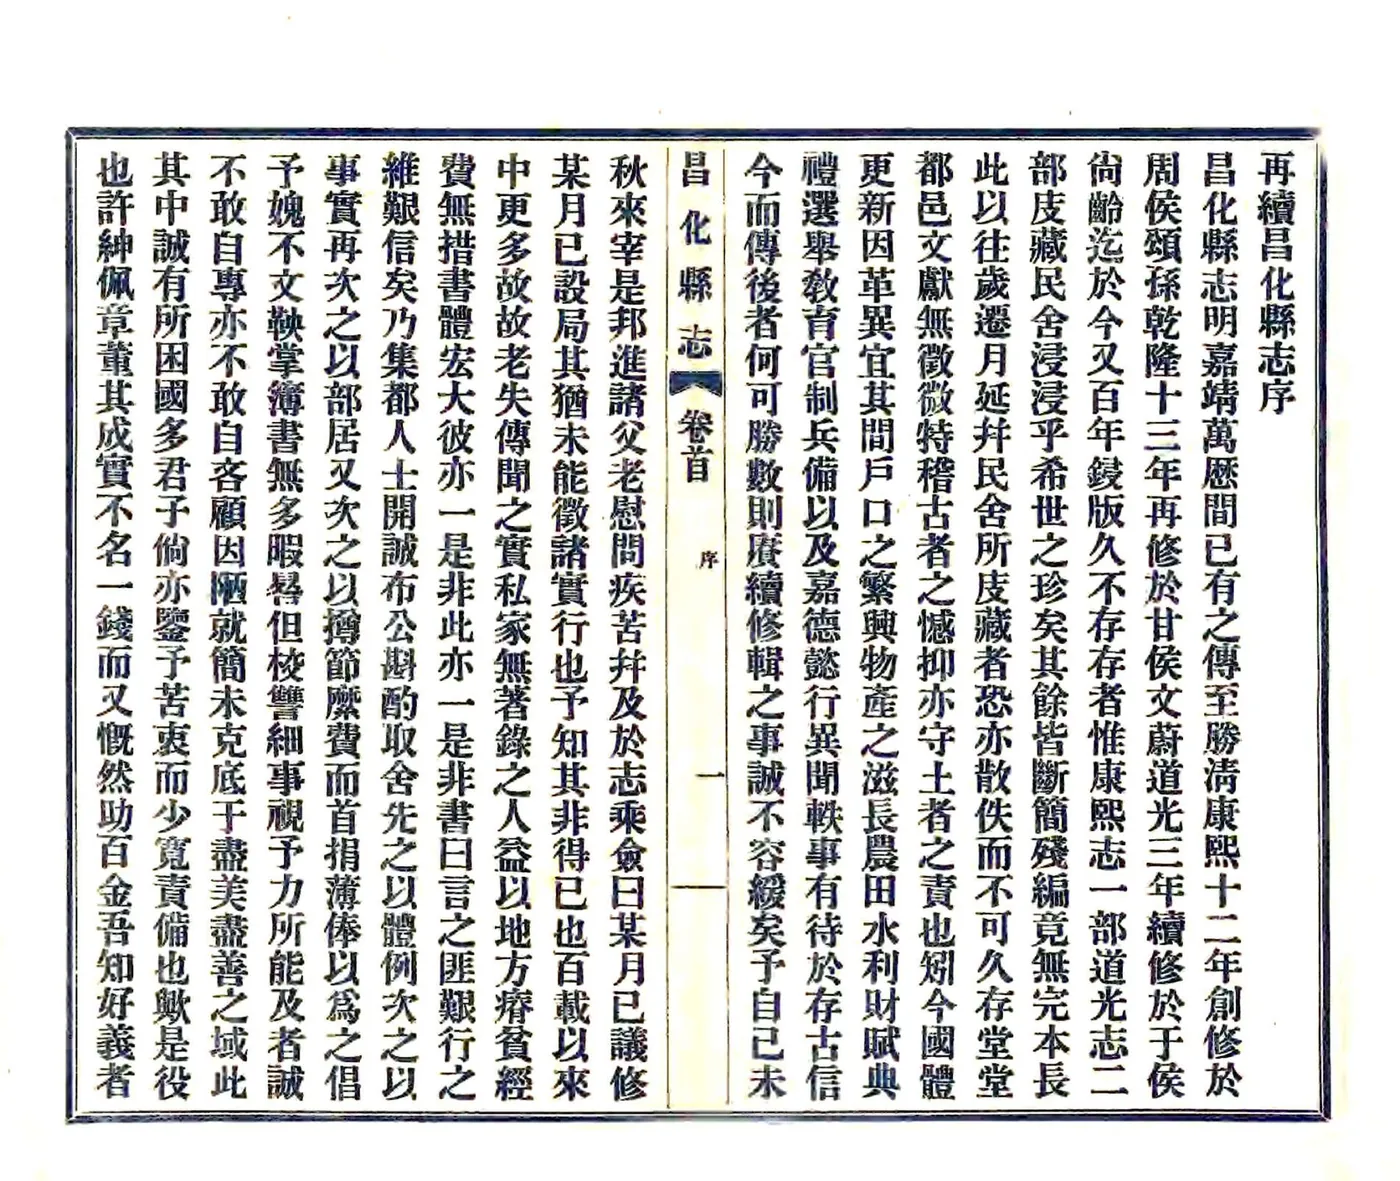 再續昌化縣志序
昌化縣志明嘉靖萬歷間已有之傳至勝淸康熙十二年創修於
周侯頌孫乾隆十三年再修於甘侯文蔚道光三年續修於于侯
尙齡迄於今又百年鋟版久不存存者惟康熙志一部道光志二
部庋藏民舍浸浸乎希世之珍矣其餘皆斷簡殘編竟無完本長
此以往歲遷月延幷民舍所庋藏者恐亦散佚而不可久存堂堂
都邑文獻無徵微特稽古者之憾抑亦守土者之責也矧今國體
更新因革異宜其間戶口之繁興物產之滋長農田水利財賦典
禮選舉敎育官制兵備以及嘉德懿行異聞軼事有待於存古信
今而傳後者何可勝數則賡續修輯之事誠不容緩矣予自己未
昌化縣志 卷首 序 一
秋來宰是邦進諸父老慰問疾苦幷及於志乘僉曰某月已議修
某月已設局其猶未能徵諸實行也予知其非得已也百載以來
中更多故故老失傳聞之實私家無著錄之人益以地方瘠貧經
費無措書體宏大彼亦一是非此亦一是非書曰言之匪艱行之
維艱信矣乃集都人士開誠布公斟酌取舍先之以體例次之以
事實再次之以部居又次之以撙節縻費而首捐薄俸以爲之倡
予媿不文鞅掌簿書無多暇晷但校讐細事視予力所能及者誠
不敢自專亦不敢自吝顧因陋就簡未克底于盡美盡善之域此
其中誠有所困國多君子倘亦鑒予苦衷而少寬責備也歟是役
也許紳佩章董其成實不名一錢而又慨然助百金吾知好義者